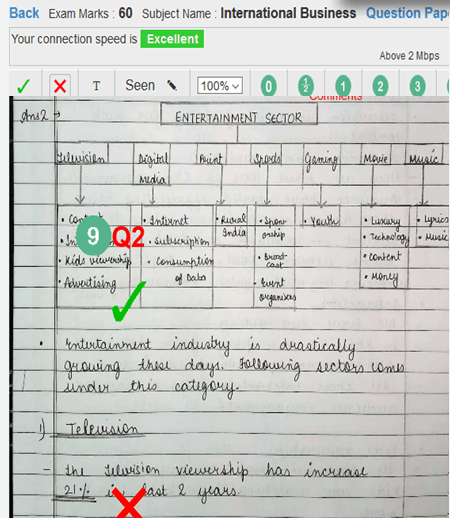 Back Exam Marks : 60 Subject Name : International Business Question Pap
Your connection speed is Excellent
Above 2 Mbps
T Seen 100% 0 1/2 1 2 3
Comments
Ans 2 →
ENTERTAINMENT SECTOR
Television Digital Media Print Sports Gaming Movie Music
• Kids viewership
• Advertising
9 Q2
• Internet
• subscription
• Consumption of Data
• Rural India
• Sponsorship
• Broadcast
• Event organizers
• Youth
• Luxury
• Technology
• Content
• Money
• Lyrics
• Music
• Entertainment industry is drastically
growing these days. Following sectors comes
under this category.
1) Television
- the television viewership has increase
21% in last 2 years.